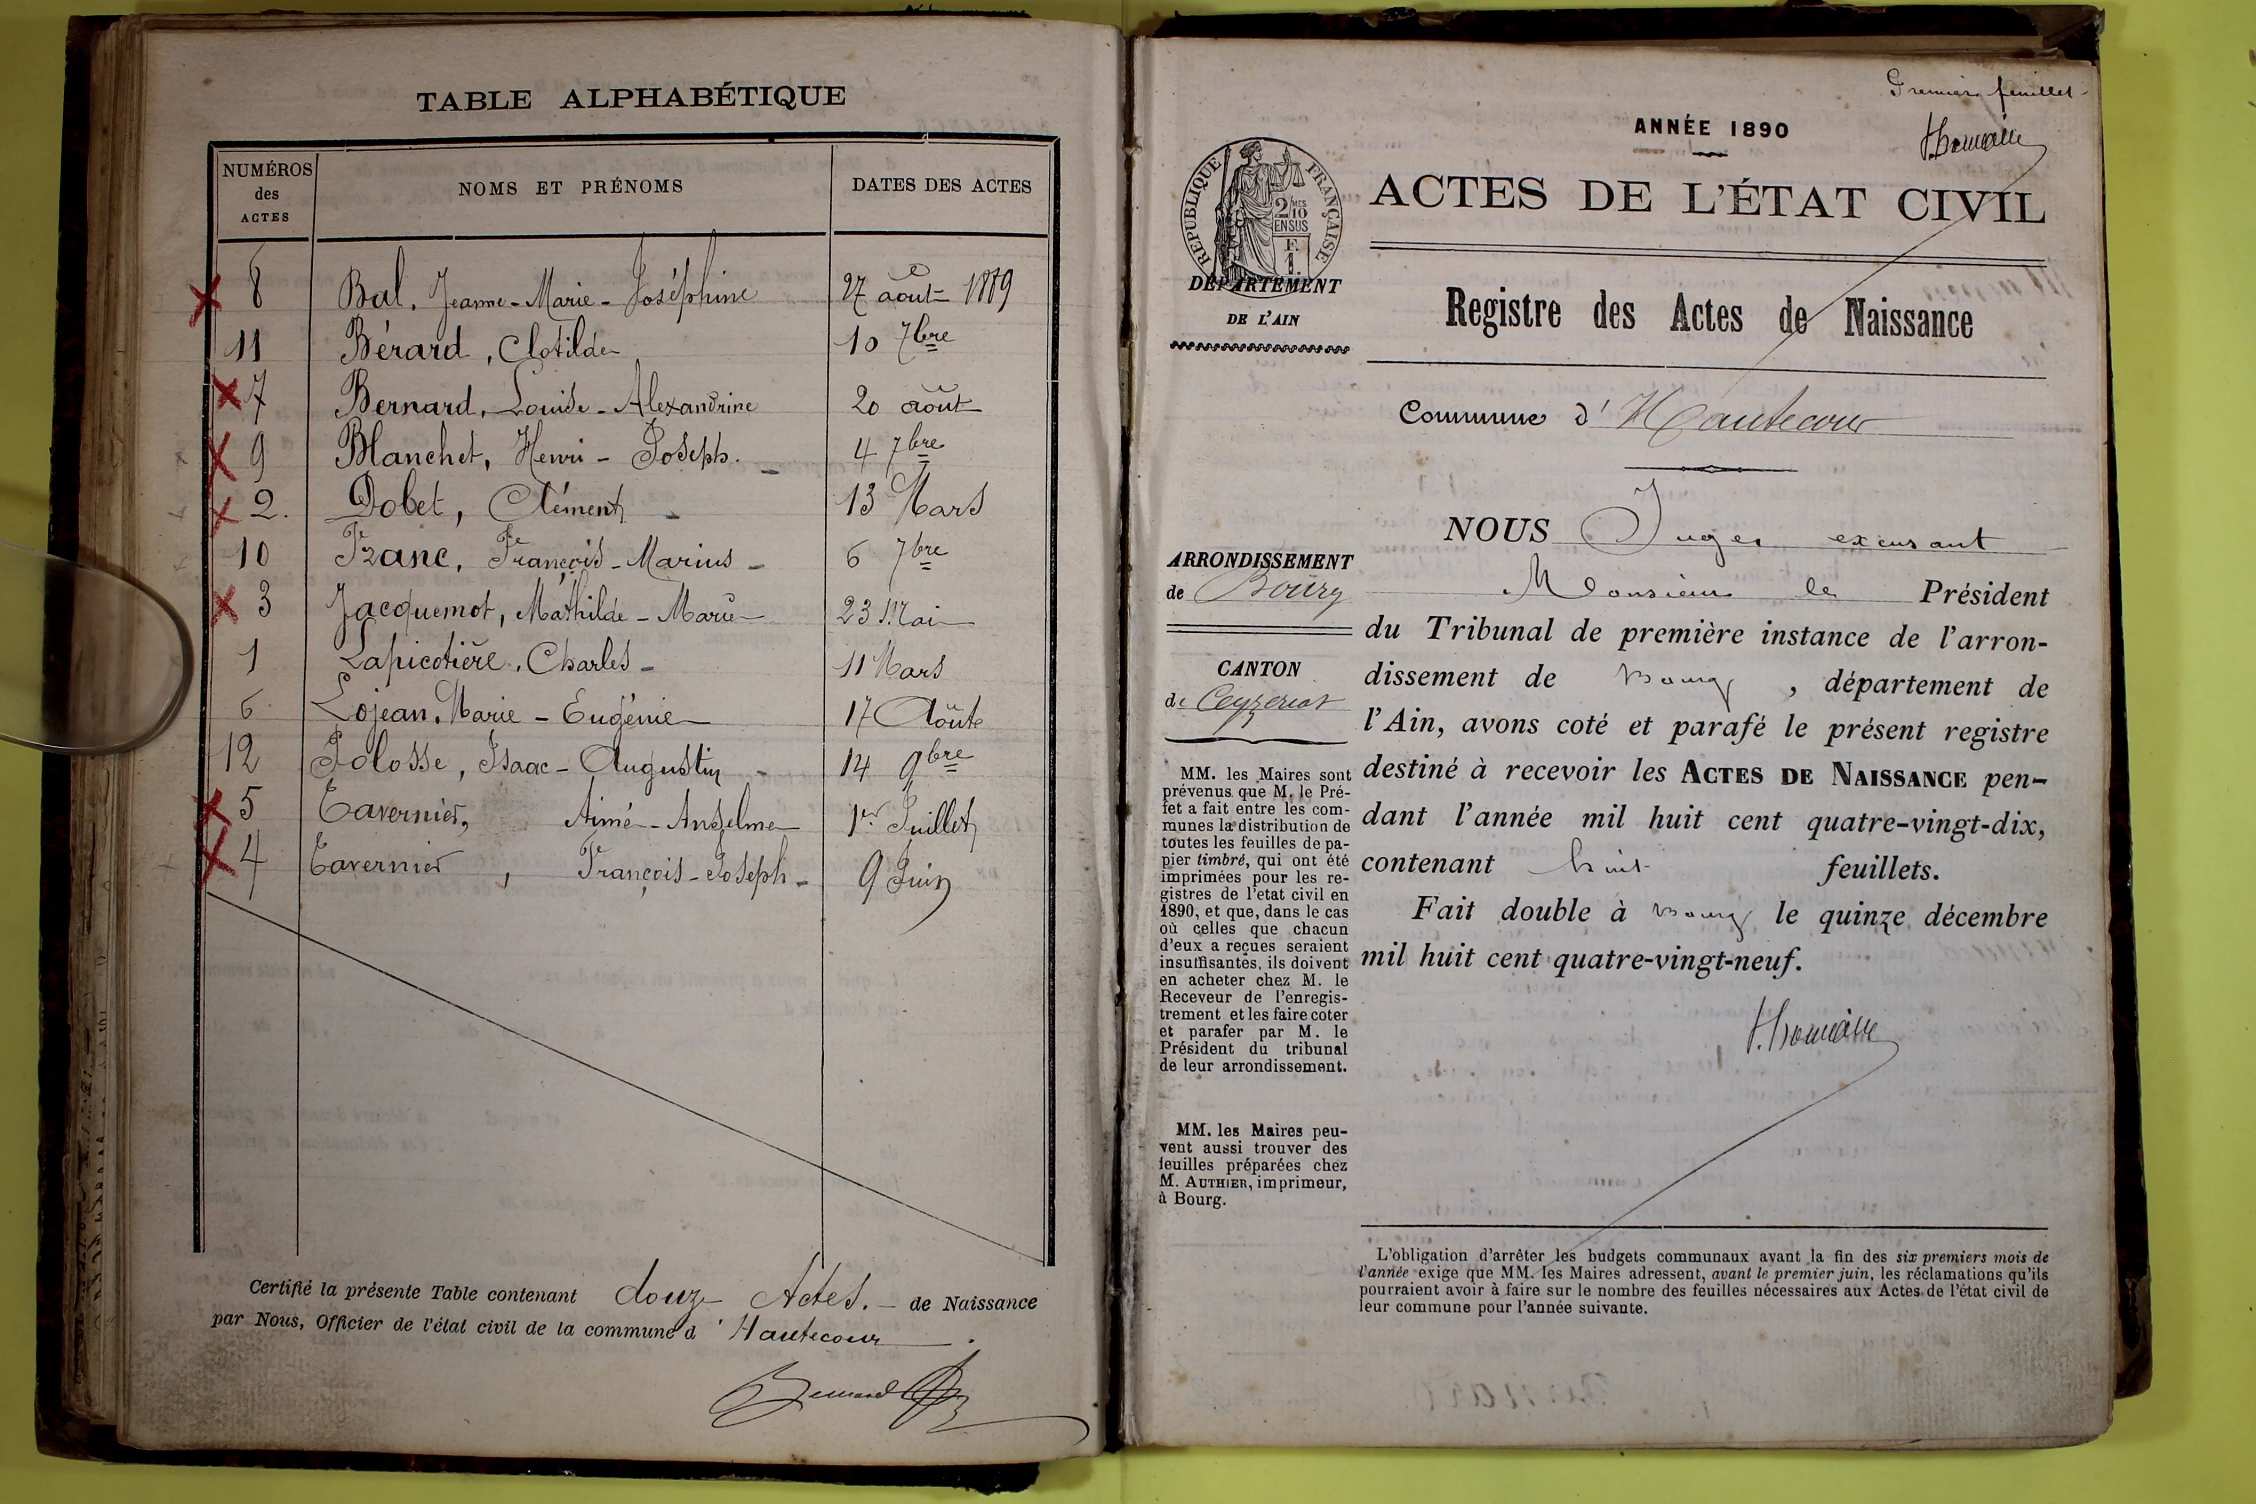 TABLE ALPHABÉTIQUE
NUMÉROS des ACTES
NOMS ET PRÉNOMS
DATES DES ACTES
8 Bal, Jeanne-Marie-Joséphine 27 août 1889
11 Bérard, Clotilde 10 7bre
7 Bernard, Louise-Alexandrine 20 août
9 Blanchet, Henri-Joseph. 4 7bre
2. Dobet, Clément 13 Mars
10 Franc, François-Marius 6 7bre
3 Jacquemot, Mathilde-Marie 23 Mai
1 Lapicotière, Charles 11 Mars
6 Lojean, Marie-Eugénie 17 Août
12 Polosse, Isaac-Augustin 14 9bre
5 Tavernier, Aimé-Anselme 1er Juillet
4 Tavernier, François-Joseph 9 Juin
Certifié la présente Table contenant douze Actes. de Naissance
par Nous, Officier de l'état civil de la commune d'Hautecour
Bernard
Premier feuillet
ANNÉE 1890
RÉPUBLIQUE FRANÇAISE
2/10 MES
EN SUS
F.
1.
ACTES DE L'ÉTAT CIVIL
DÉPARTEMENT
DE L'AIN
Registre des Actes de Naissance
Commune d'Hautecour
ARRONDISSEMENT
de Bourg
CANTON
de Ceyzeriat
MM. les Maires sont
prévenus que M. le Pré-
fet a fait entre les com-
munes la distribution de
toutes les feuilles de pa-
pier timbré, qui ont été
imprimées pour les re-
gistres de l'état civil en
1890, et que, dans le cas
où celles que chacun
d'eux a reçues seraient
insuffisantes, ils doivent
en acheter chez M. le
Receveur de l'enregis-
trement et les faire coter
et parafer par M. le
Président du tribunal
de leur arrondissement.
MM. les Maires peu-
vent aussi trouver des
feuilles préparées chez
M. AUTHIER, imprimeur,
à Bourg.
NOUS Juge excusant
Monsieur le Président
du Tribunal de première instance de l'arron-
dissement de Bourg, département de
l'Ain, avons coté et parafé le présent registre
destiné à recevoir les ACTES DE NAISSANCE pen-
dant l'année mil huit cent quatre-vingt-dix,
contenant huit feuillets.
Fait double à Bourg le quinze décembre
mil huit cent quatre-vingt-neuf.
L'obligation d'arrêter les budgets communaux avant la fin des six premiers mois de
l'année exige que MM. les Maires adressent, avant le premier juin, les réclamations qu'ils
pourraient avoir à faire sur le nombre des feuilles nécessaires aux Actes de l'état civil de
leur commune pour l'année suivante.